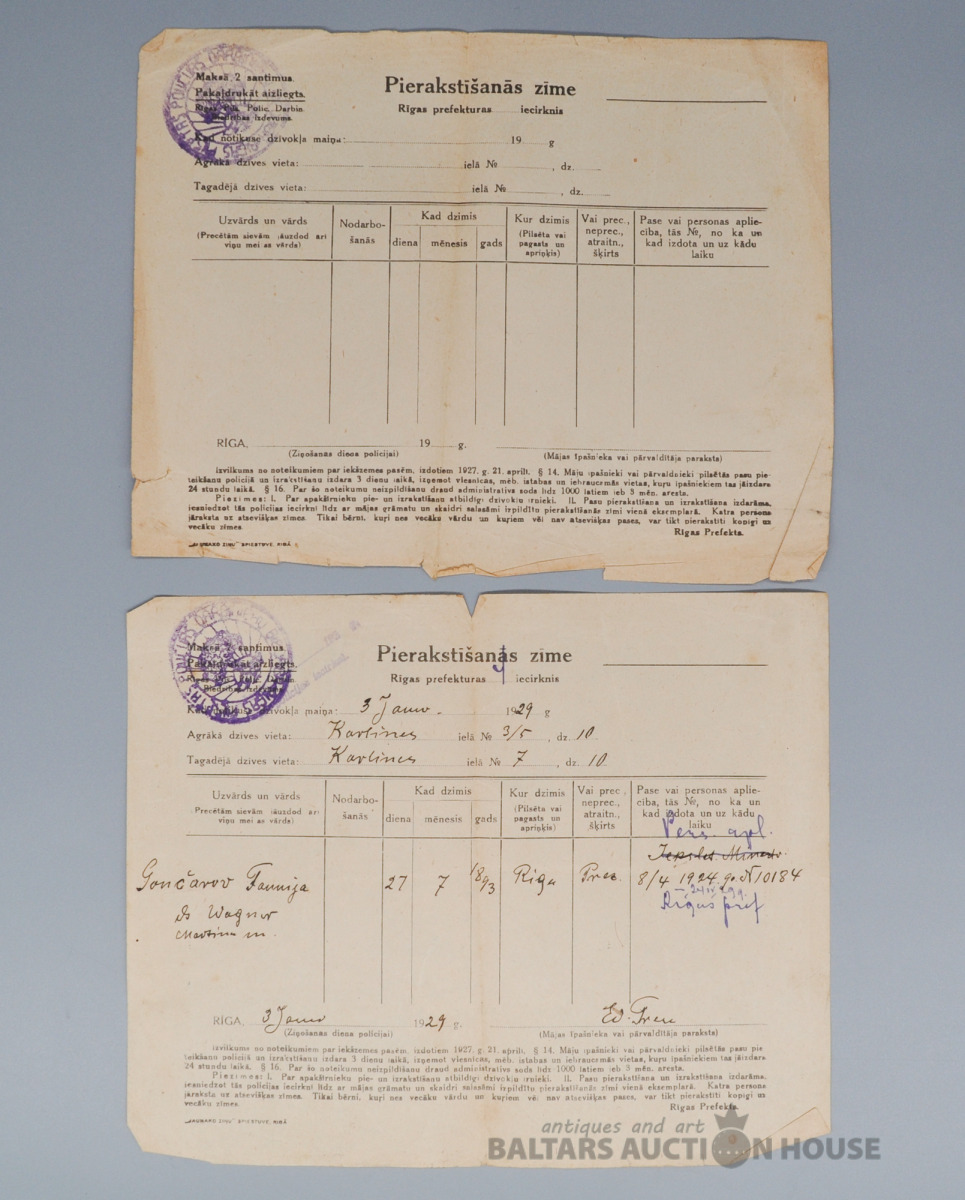 Maksā 2 santimus.
Pakaļdrukāt aizliegts.
Rīgas Polic. Darbin.
Biedrības Izdevums.
Pierakstīšanās zīme
Rīgas prefekturas iecirknis
Kad notikuse dzīvokļa maiņa: 19 g
Agrākā dzīves vieta: ielā № , dz.
Tagadējā dzīves vieta: ielā № , dz.
Uzvārds un vārds
(Precētām sievām jāuzdod arī
viņu meitas vārds)
Nodarbo-
šanās
Kad dzimis
diena mēnesis gads
Kur dzimis
(Pilsēta vai
pagasts un
apriņķis)
Vai prec.,
neprec.,
atraitn.,
šķirts
Pase vai personas aplie-
cība, tās №, no kā un
kad izdota un uz kādu
laiku
RĪGĀ, 19 g.
(Ziņošanas diena policijai) (Mājas īpašnieka vai pārvaldītāja paraksts)
Izvilkums no noteikumiem par iekšzemes pasēm, izdotiem 1927. g. 21. aprīlī. § 14. Māju īpašnieki vai pārvaldnieki pilsētās pasu pie-
teikšanu policijā un izrakstīšanu izdara 3 dienu laikā, izņemot viesnīcas, mēb. istabas un iebraucamās vietas, kuŗu īpašniekiem tas jāizdara
24 stundu laikā. § 16. Par šo noteikumu neizpildīšanu draud administratīvs sods līdz 1000 latiem jeb 3 mēn. aresta.
Piezīmes: I. Par apakšīrnieku pie- un izrakstīšanu atbildīgi dzīvokļu īrnieki. II. Pasu pierakstīšana un izrakstīšana izdarāma,
iesniedzot tās policijas iecirknī līdz ar mājas grāmatu un skaidri salasāmi izpildītu pierakstīšanās zīmi vienā eksemplarā. Katra persona
jāraksta uz atsevišķas zīmes. Tikai bērni, kuŗi nes vecāku vārdu un kuŗiem vēl nav atsevišķas pases, var tikt pierakstīti kopīgi uz
vecāku zīmes.
Rīgas Prefekts.
„JAUNĀKO ZIŅU" SPIESTUVE, RĪGĀ
Maksā 2 santimus.
Pakaļdrukāt aizliegts.
Biedrības Izdevums.
Pierakstīšanās zīme
Rīgas prefekturas 4 iecirknis
Kad notikuse dzīvokļa maiņa: 3 Janv. 1929 g
Agrākā dzīves vieta: Karlines ielā № 3/5, dz. 10.
Tagadējā dzīves vieta: Karlines ielā № 7, dz. 10.
Uzvārds un vārds
(Precētām sievām jāuzdod arī
viņu meitas vārds)
Nodarbo-
šanās
Kad dzimis
diena mēnesis gads
Kur dzimis
(Pilsēta vai
pagasts un
apriņķis)
Vai prec.,
neprec.,
atraitn.,
šķirts
Pase vai personas aplie-
cība, tās №, no kā un
kad izdota un uz kādu
laiku
Pers. apl.
Gončarov Fannija 27 7 1893 Riga Prec. 8/4 1924 g. N 10184
dz Wagner
Martina m.
Rigas pref
RĪGĀ, 3 Janv 1929 g. Ed. Frey
(Ziņošanas diena policijai) (Mājas īpašnieka vai pārvaldītāja paraksts)
Izvilkums no noteikumiem par iekšzemes pasēm, izdotiem 1927. g. 21. aprīlī. § 14. Māju īpašnieki vai pārvaldnieki pilsētās pasu pie-
teikšanu policijā un izrakstīšanu izdara 3 dienu laikā, izņemot viesnīcas, mēb. istabas un iebraucamās vietas, kuŗu īpašniekiem tas jāizdara
24 stundu laikā. § 16. Par šo noteikumu neizpildīšanu draud administratīvs sods līdz 1000 latiem jeb 3 mēn. aresta.
Piezīmes: I. Par apakšīrnieku pie- un izrakstīšanu atbildīgi dzīvokļu īrnieki. II. Pasu pierakstīšana un izrakstīšana izdarāma,
iesniedzot tās policijas iecirknī līdz ar mājas grāmatu un skaidri salasāmi izpildītu pierakstīšanās zīmi vienā eksemplarā. Katra persona
jāraksta uz atsevišķas zīmes. Tikai bērni, kuŗi nes vecāku vārdu un kuŗiem vēl nav atsevišķas pases, var tikt pierakstīti kopīgi uz
vecāku zīmes.
Rīgas Prefekts.
„JAUNĀKO ZIŅU" SPIESTUVE, RĪGĀ
antiques and art
BALTARS AUCTION HOUSE